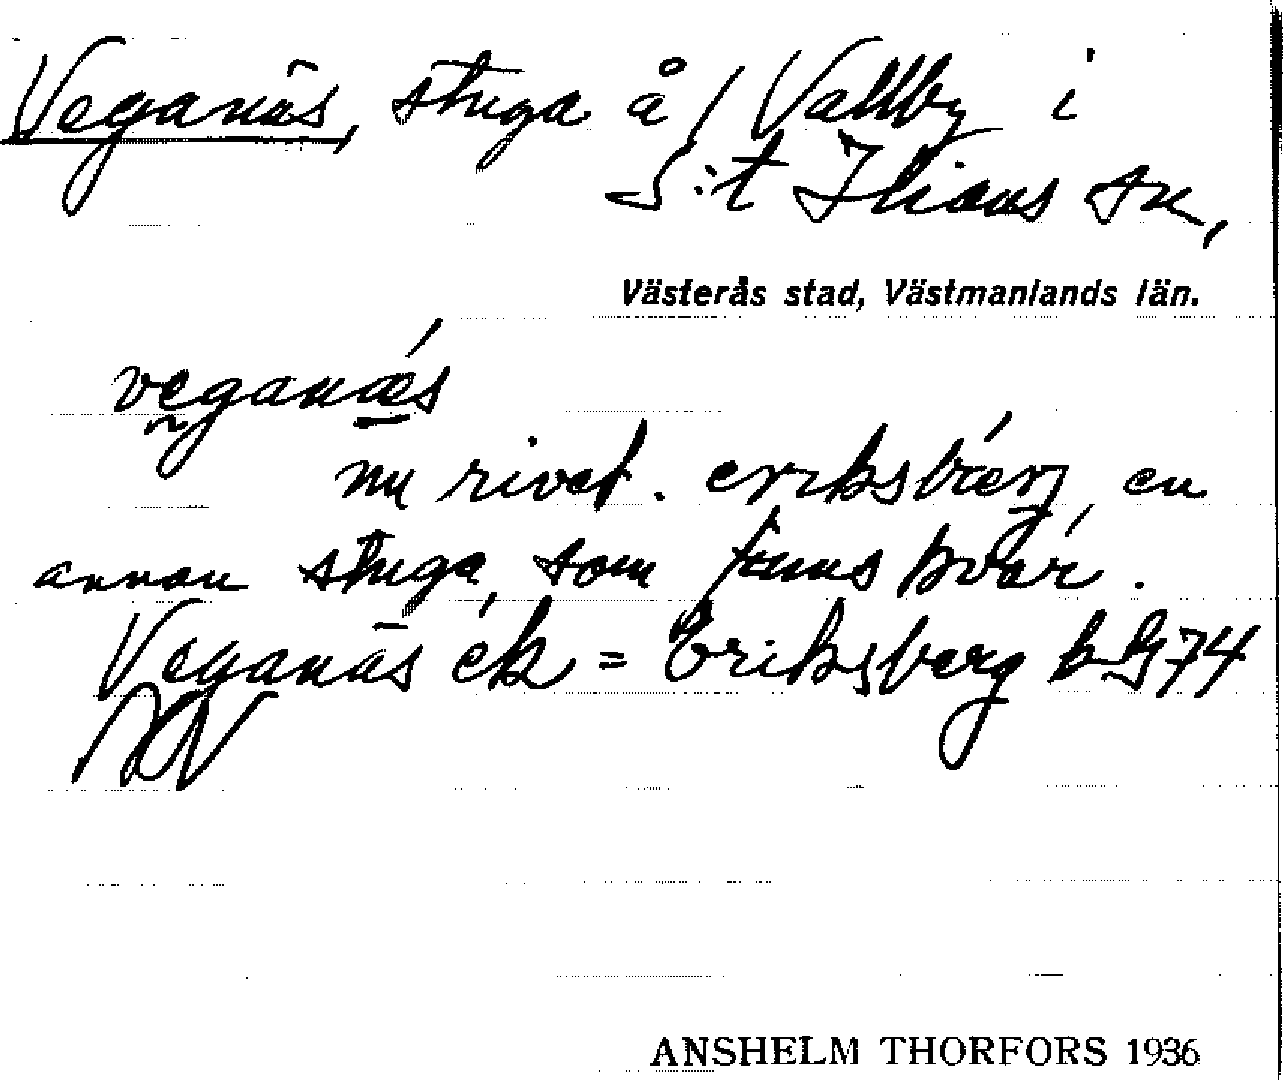 Veganäs, stuga å / Vallby i
S:t Ilians sn,
Västerås stad, Västmanlands län.
veganæs
nu rivet. eriksbærj, en
annan stuga, som finns kvar.
Veganäs ek = Eriksberg
ANSHELM THORFORS 1936